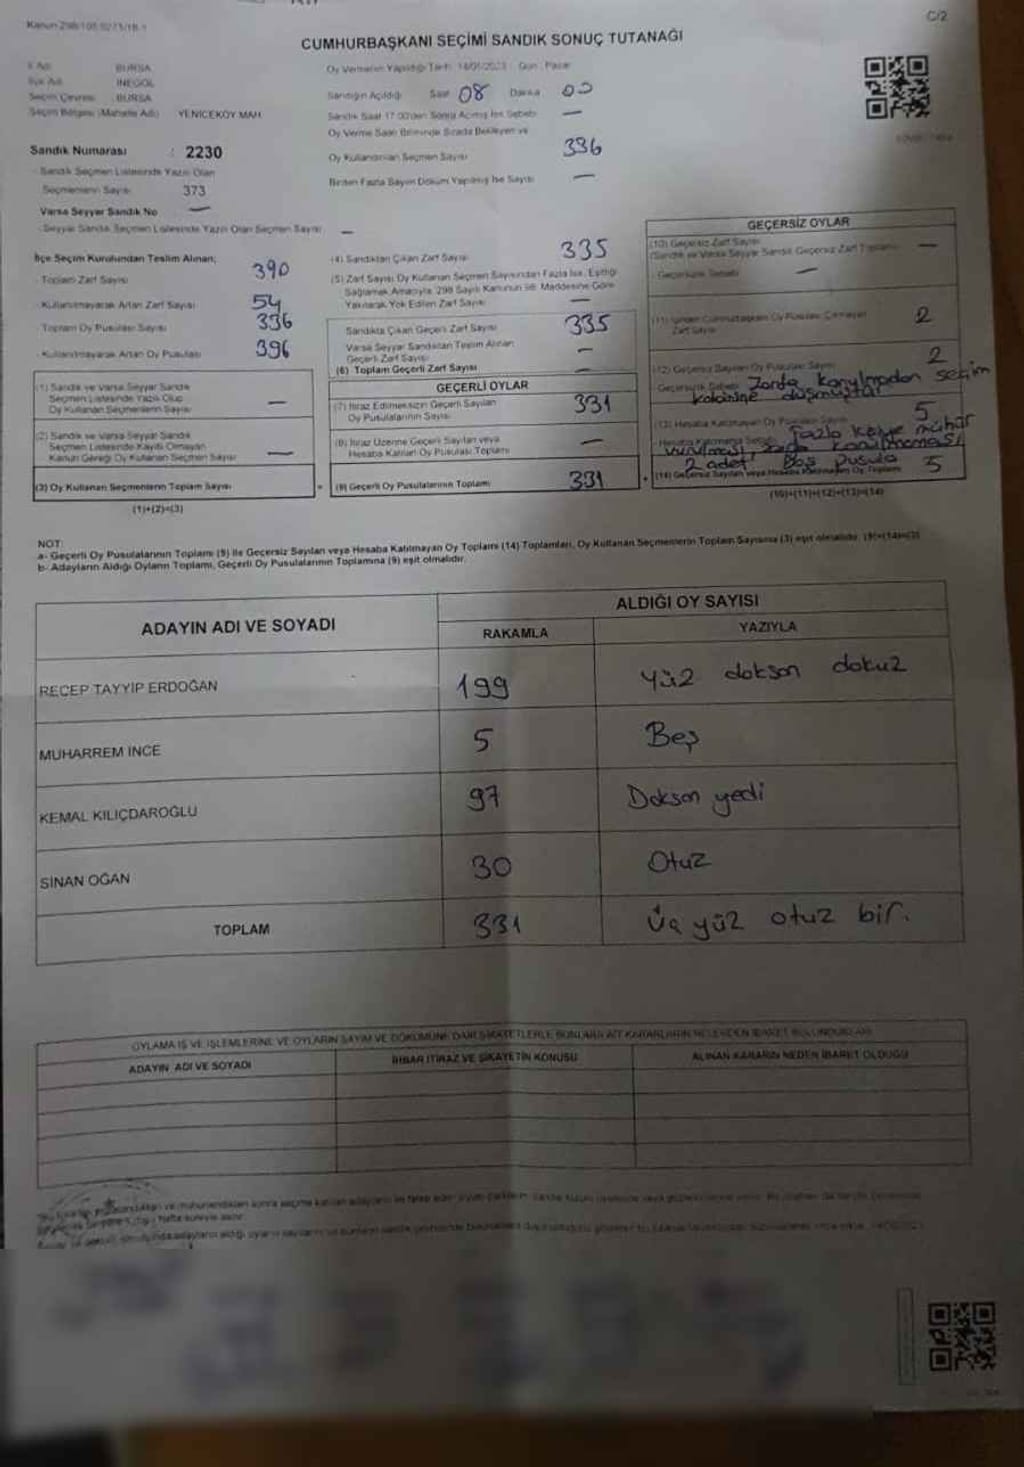 C/2
CUMHURBAŞKANI SEÇİMİ SANDIK SONUÇ TUTANAĞI
İl Adı BURSA
İlçe Adı İNEGÖL
Seçim Çevresi BURSA
Seçim Bölgesi (Mahalle Adı) YENİCEKÖY MAH.
Sandık Numarası : 2230
Sandık Seçmen Listesinde Yazılı Olan
Seçmenlerin Sayısı 373
Varsa Seyyar Sandık No —
Seyyar Sandık Seçmen Listesinde Yazılı Olan Seçmen Sayısı —
Oy Vermenin Yapıldığı Tarih: 14/05/2023 Gün: Pazar
Sandığın Açıldığı Saat 08 Dakika 00
Sandık Saat 17.00'den Sonra Açılmış İse Sebebi —
Oy Verme Saati Bitiminde Sırada Bekleyen ve
Oy Kullandırılan Seçmen Sayısı 336
Birden Fazla Sayım Döküm Yapılmış İse Sayısı —
İlçe Seçim Kurulundan Teslim Alınan;
- Toplam Zarf Sayısı 390
- Kullanılmayarak Artan Zarf Sayısı 54
Toplam Oy Pusulası Sayısı 336
- Kullanılmayarak Artan Oy Pusulası 396
(1) Sandık ve Varsa Seyyar Sandık
Seçmen Listesinde Yazılı Olup
Oy Kullanan Seçmenlerin Sayısı —
(2) Sandık ve Varsa Seyyar Sandık
Seçmen Listesinde Kayıtlı Olmayan
Kanun Gereği Oy Kullanan Seçmen Sayısı —
(3) Oy Kullanan Seçmenlerin Toplam Sayısı
(1)+(2)=(3)
(4) Sandıktan Çıkan Zarf Sayısı 335
(5) Zarf Sayısı Oy Kullanan Seçmen Sayısından Fazla İse, Eşitliği
Sağlamak Amacıyla 298 Sayılı Kanunun 98. Maddesine Göre
Yakılarak Yok Edilen Zarf Sayısı —
Sandıkta Çıkan Geçerli Zarf Sayısı 335
Varsa Seyyar Sandıktan Teslim Alınan
Geçerli Zarf Sayısı —
(6) Toplam Geçerli Zarf Sayısı —
GEÇERLİ OYLAR
(7) İtiraz Edilmeksizin Geçerli Sayılan
Oy Pusulalarının Sayısı 331
(8) İtiraz Üzerine Geçerli Sayılan veya
Hesaba Katılan Oy Pusulası Toplamı —
(9) Geçerli Oy Pusulalarının Toplamı 331
GEÇERSİZ OYLAR
(10) Geçersiz Zarf Sayısı
(Sandık ve Varsa Seyyar Sandık Geçersiz Zarf Toplamı) —
Geçersizlik Sebebi —
Zarf Sayısı 2
(12) Geçersiz Sayılan Oy Pusulası Sayısı 2
Geçersizlik Sebebi Zarfa konulmadan seçim
kabinine düşmüştür
(13) Hesaba Katılmayan Oy Pusulası Sayısı 5
Hesaba Katılmama Sebebi Fazla kere mühür
vurulması, zarfa konulmaması
2 adet Boş pusula
(14) Geçersiz Sayılan veya Hesaba Katılmayan Oy Toplamı 5
(10)+(11)+(12)+(13)=(14)
NOT:
a- Geçerli Oy Pusulalarının Toplamı (9) ile Geçersiz Sayılan veya Hesaba Katılmayan Oy Toplamı (14) Toplamları, Oy Kullanan Seçmenlerin Toplam Sayısına (3) eşit olmalıdır. (9)+(14)=(3)
b- Adayların Aldığı Oyların Toplamı, Geçerli Oy Pusulalarının Toplamına (9) eşit olmalıdır.
ADAYIN ADI VE SOYADI
ALDIĞI OY SAYISI
RAKAMLA YAZIYLA
RECEP TAYYİP ERDOĞAN 199 yüz doksan dokuz
MUHARREM İNCE 5 Beş
KEMAL KILIÇDAROĞLU 97 Doksan yedi
SİNAN OĞAN 30 Otuz
TOPLAM 331 Üç yüz otuz bir.
OYLAMA İŞ VE İŞLEMLERİNE VE OYLARIN SAYIM VE DÖKÜMÜNE DAİR ŞİKAYETLERLE BUNLARA AİT KARARLARIN NELERDEN İBARET BULUNDUKLARI
ADAYIN ADI VE SOYADI İHBAR İTİRAZ VE ŞİKAYETİN KONUSU ALINAN KARARIN NEDEN İBARET OLDUĞU